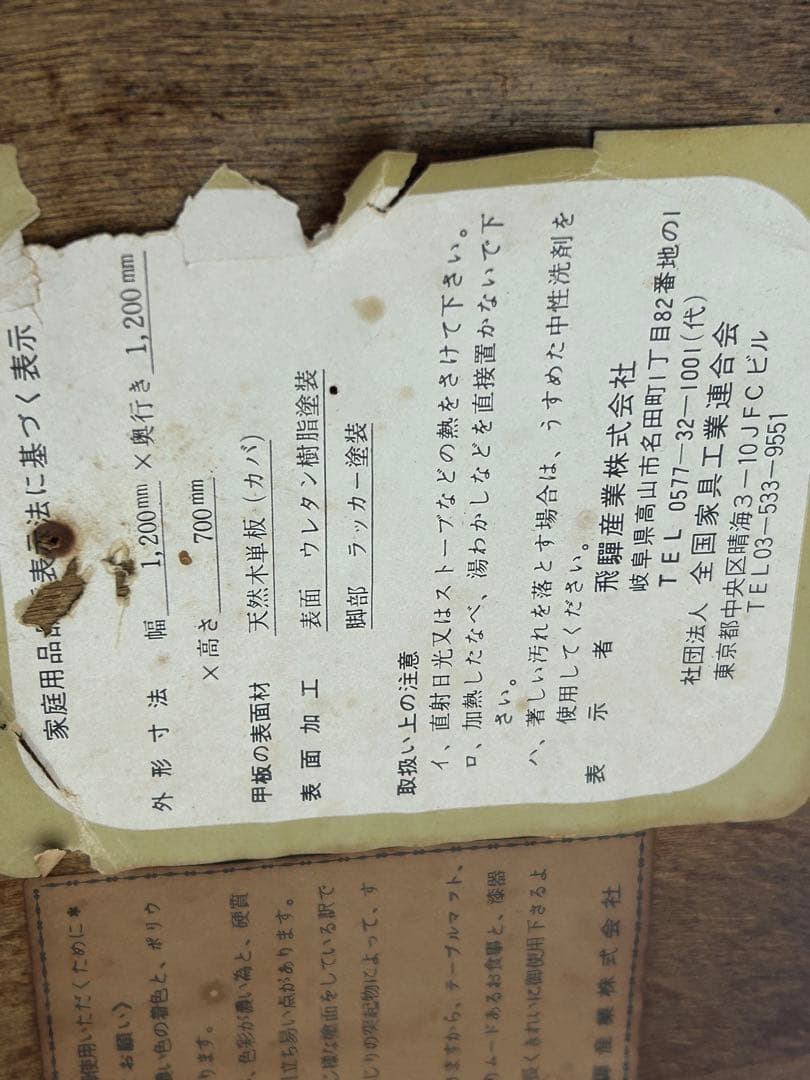 家庭用品品 表示法に基づく表示
外形寸法 幅 1,200mm × 奥行き 1,200mm
× 高さ 700mm
甲板の表面材 天然木単板 (カバ)
表面加工 表面 ウレタン樹脂塗装
脚部 ラッカー塗装
取扱い上の注意
イ、直射日光又はストーブなどの熱をさけて下さい。
ロ、加熱したなべ、湯わかしなどを直接置かないで下
さい。
ハ、著しい汚れを落とす場合は、うすめた中性洗剤を
使用してください。
表示者 飛騨産業株式会社
岐阜県高山市名田町1丁目82番地の1
TEL 0577-32-1001(代)
社団法人 全国家具工業連合会
東京都中央区晴海3-10JFCビル
TEL03-533-9551
使用いただくために*
お願い》
濃い色の着色と、ポリウ
ります。
、色彩が濃い為と、硬質
立ち易い点があります。
様な塗面をしている訳で
じりの突起物によって、す
りますから、テーブルマット、
りムードあるお食事と、漆器
長くきれいに御使用下さるよ
産業株式会社